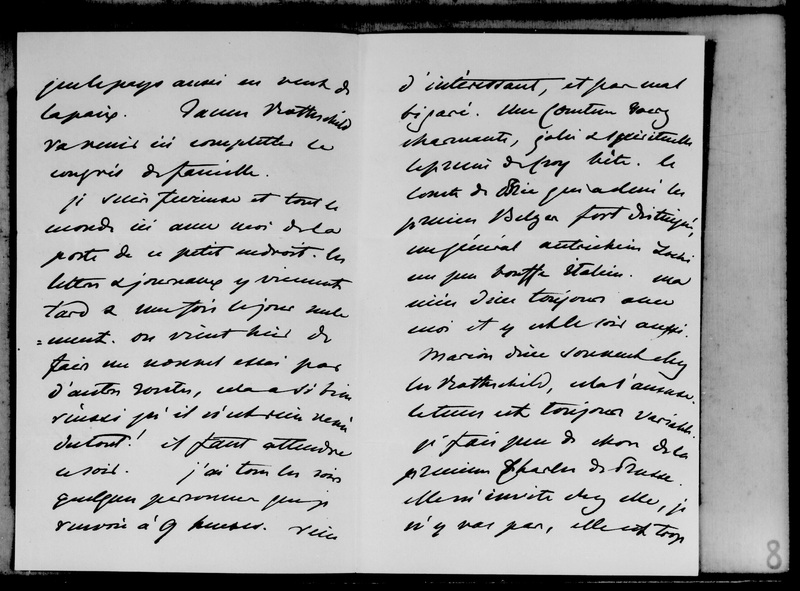 que le pays aussi en veut de
la paix. James Rothschild
va venir ici completter ce
congrès de famille.
je suis furieuse et tout le
monde ici avec moi de la
poste de ce petit endroit. les
lettres & journaux y viennent
tard & une fois le jour seule
=ment. on vient hier de
faire un nouvel essai par
d'autres routes, cela a si bien
réussi qu'il n'est rien venu
du tout! il faut attendre
ce soir. j'ai tous les soirs
quelques personnes que je
renvoie à 9 heures. rien
d'intéressant, et pas mal
bigaré. Une Comtesse
charmante, jolie & spirituelle
le prince de Croy bête. le
Comte de Brie
premier Belges fort distingué,
un général autrichien
un peu bouffe italien. ma
nièce dine toujours avec
moi et y est le soir aussi.
Marion dine souvent chez
les Rothschild, cela l'amuse.
le tems est toujours variable.
je fais peu de chose de la
princesse Charles de Prusse.
elle m'invite chez elle, je
n'y vas pas, elle est trop
8